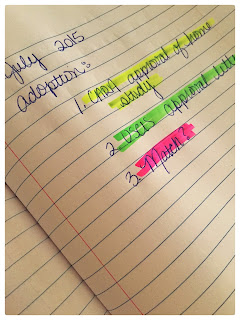 July 2015
adoption:
1. CARA approval of home
study
2. USCIS approval
3. Match?